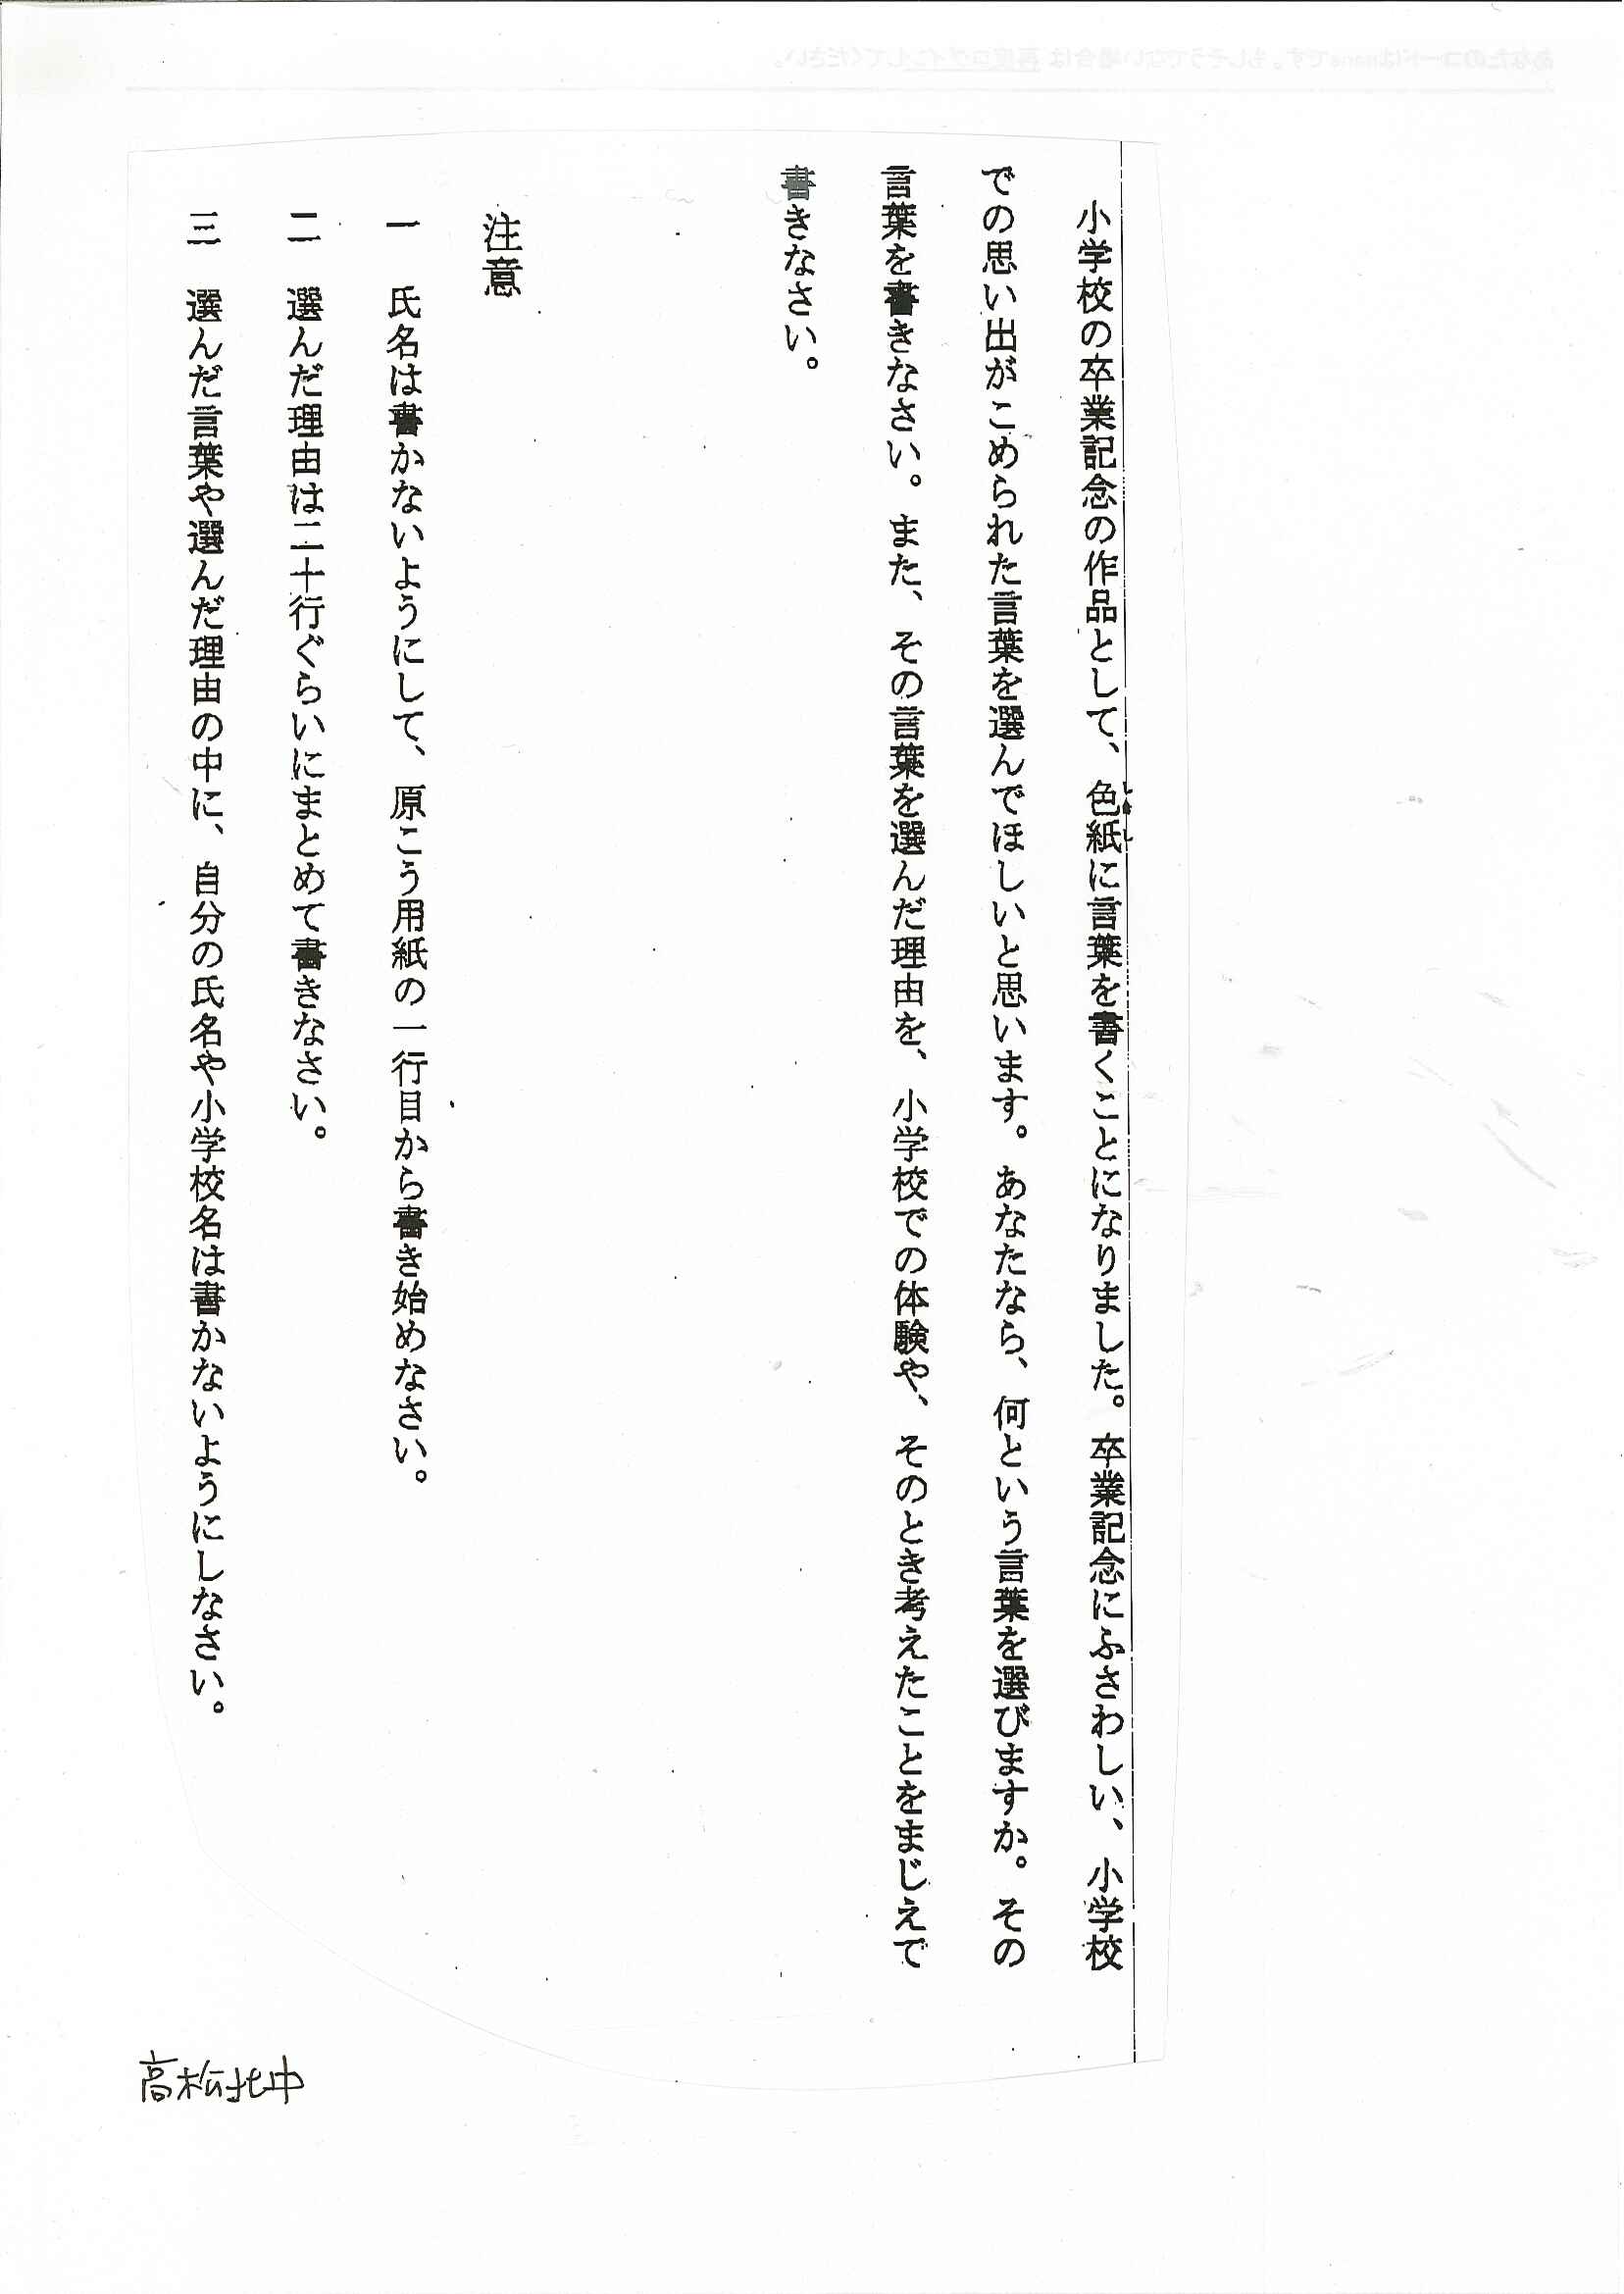 小学校の卒業記念の作品として、色紙に言葉を書くことになりました。卒業記念にふさわしい、小学校
での思い出がこめられた言葉を選んでほしいと思います。あなたなら、何という言葉を選びますか。その
言葉を書きなさい。また、その言葉を選んだ理由を、小学校での体験や、そのとき考えたことをまじえて
書きなさい。
注意
一 氏名は書かないようにして、原こう用紙の一行目から書き始めなさい。
二 選んだ理由は二十行ぐらいにまとめて書きなさい。
三 選んだ言葉や選んだ理由の中に、自分の氏名や小学校名は書かないようにしなさい。
高松北中